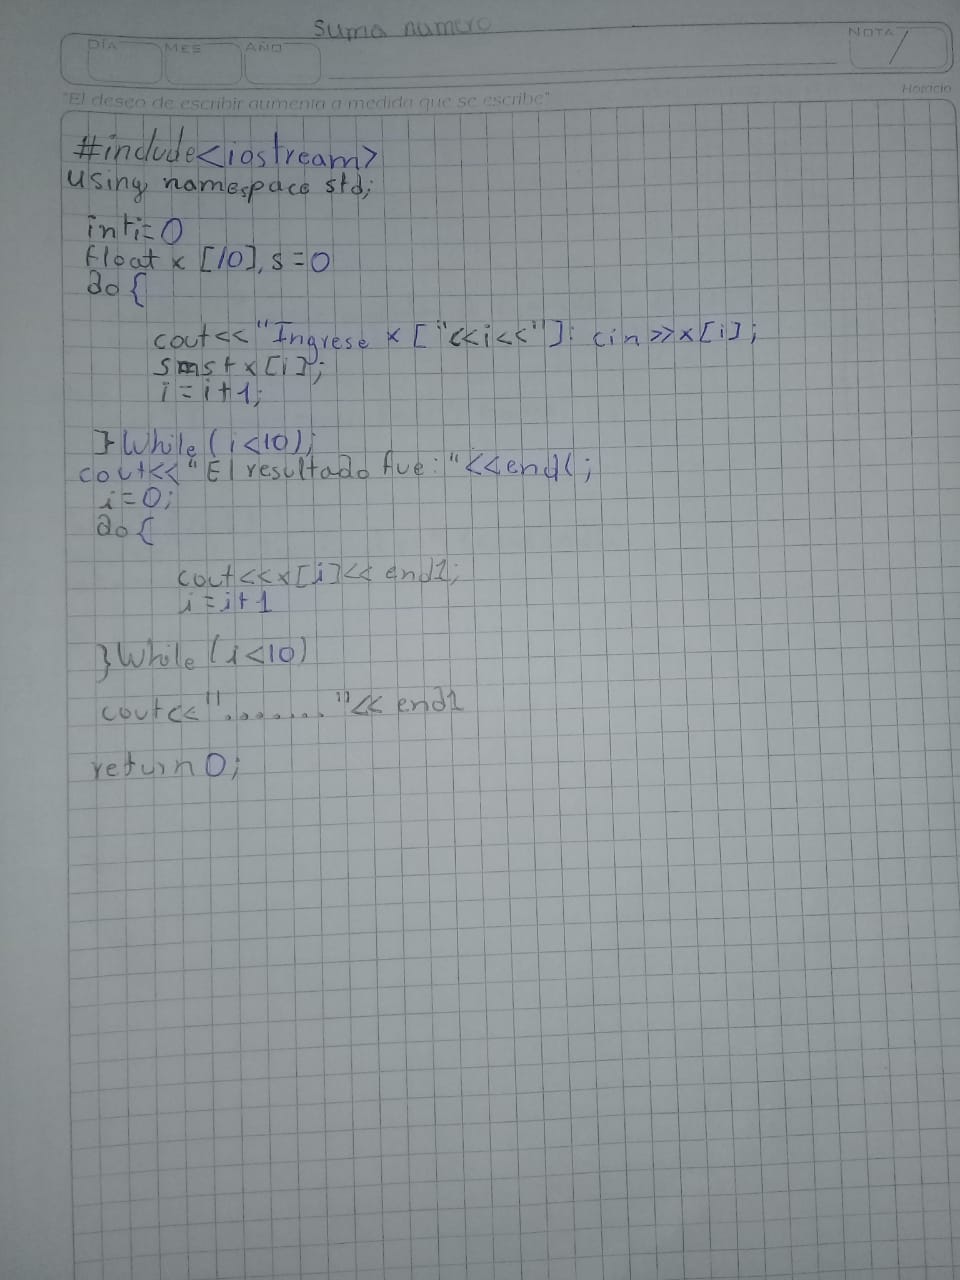 Suma numero
DÍA MES AÑO NOTA
"El deseo de escribir aumenta a medida que se escribe" Horacio
#include<iostream>
using namespace std;
int i=0
float x [10], s=0
do {
cout<< "Ingrese x ["<<i<<"]: cin>>x[i];
s=s+x[i];
i=i+1;
} While (i<10);
cout<< "El resultado fue: "<<endl;
i=0;
do {
cout<<x[i]<< end1;
i=i+1
} While (i<10)
cout<<"........"<< end1
return 0;